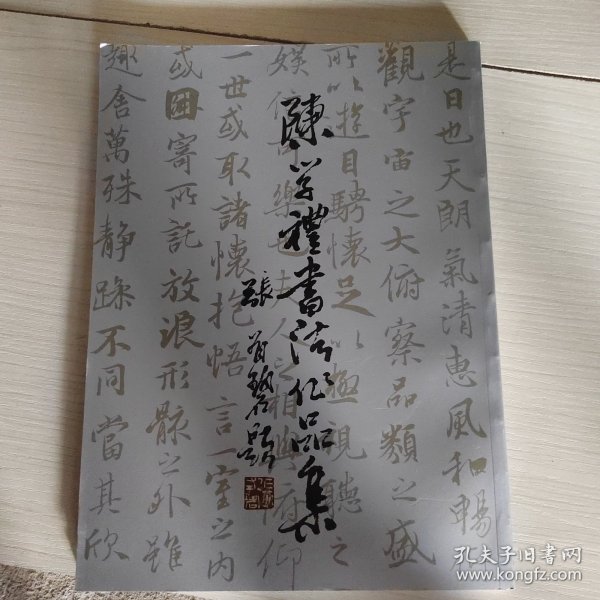 陳学禮書法作品集
張
題
是日也天朗氣清惠風和暢
觀宇宙之大俯察品類之盛
所以遊目騁懷足以極視聽之
娱信可樂也夫人之相與俯仰
一世或取諸懷抱悟言一室之内
或因寄所託放浪形骸之外雖
趣舍萬殊静躁不同當其欣
孔夫子旧书网
www.kongfz.com